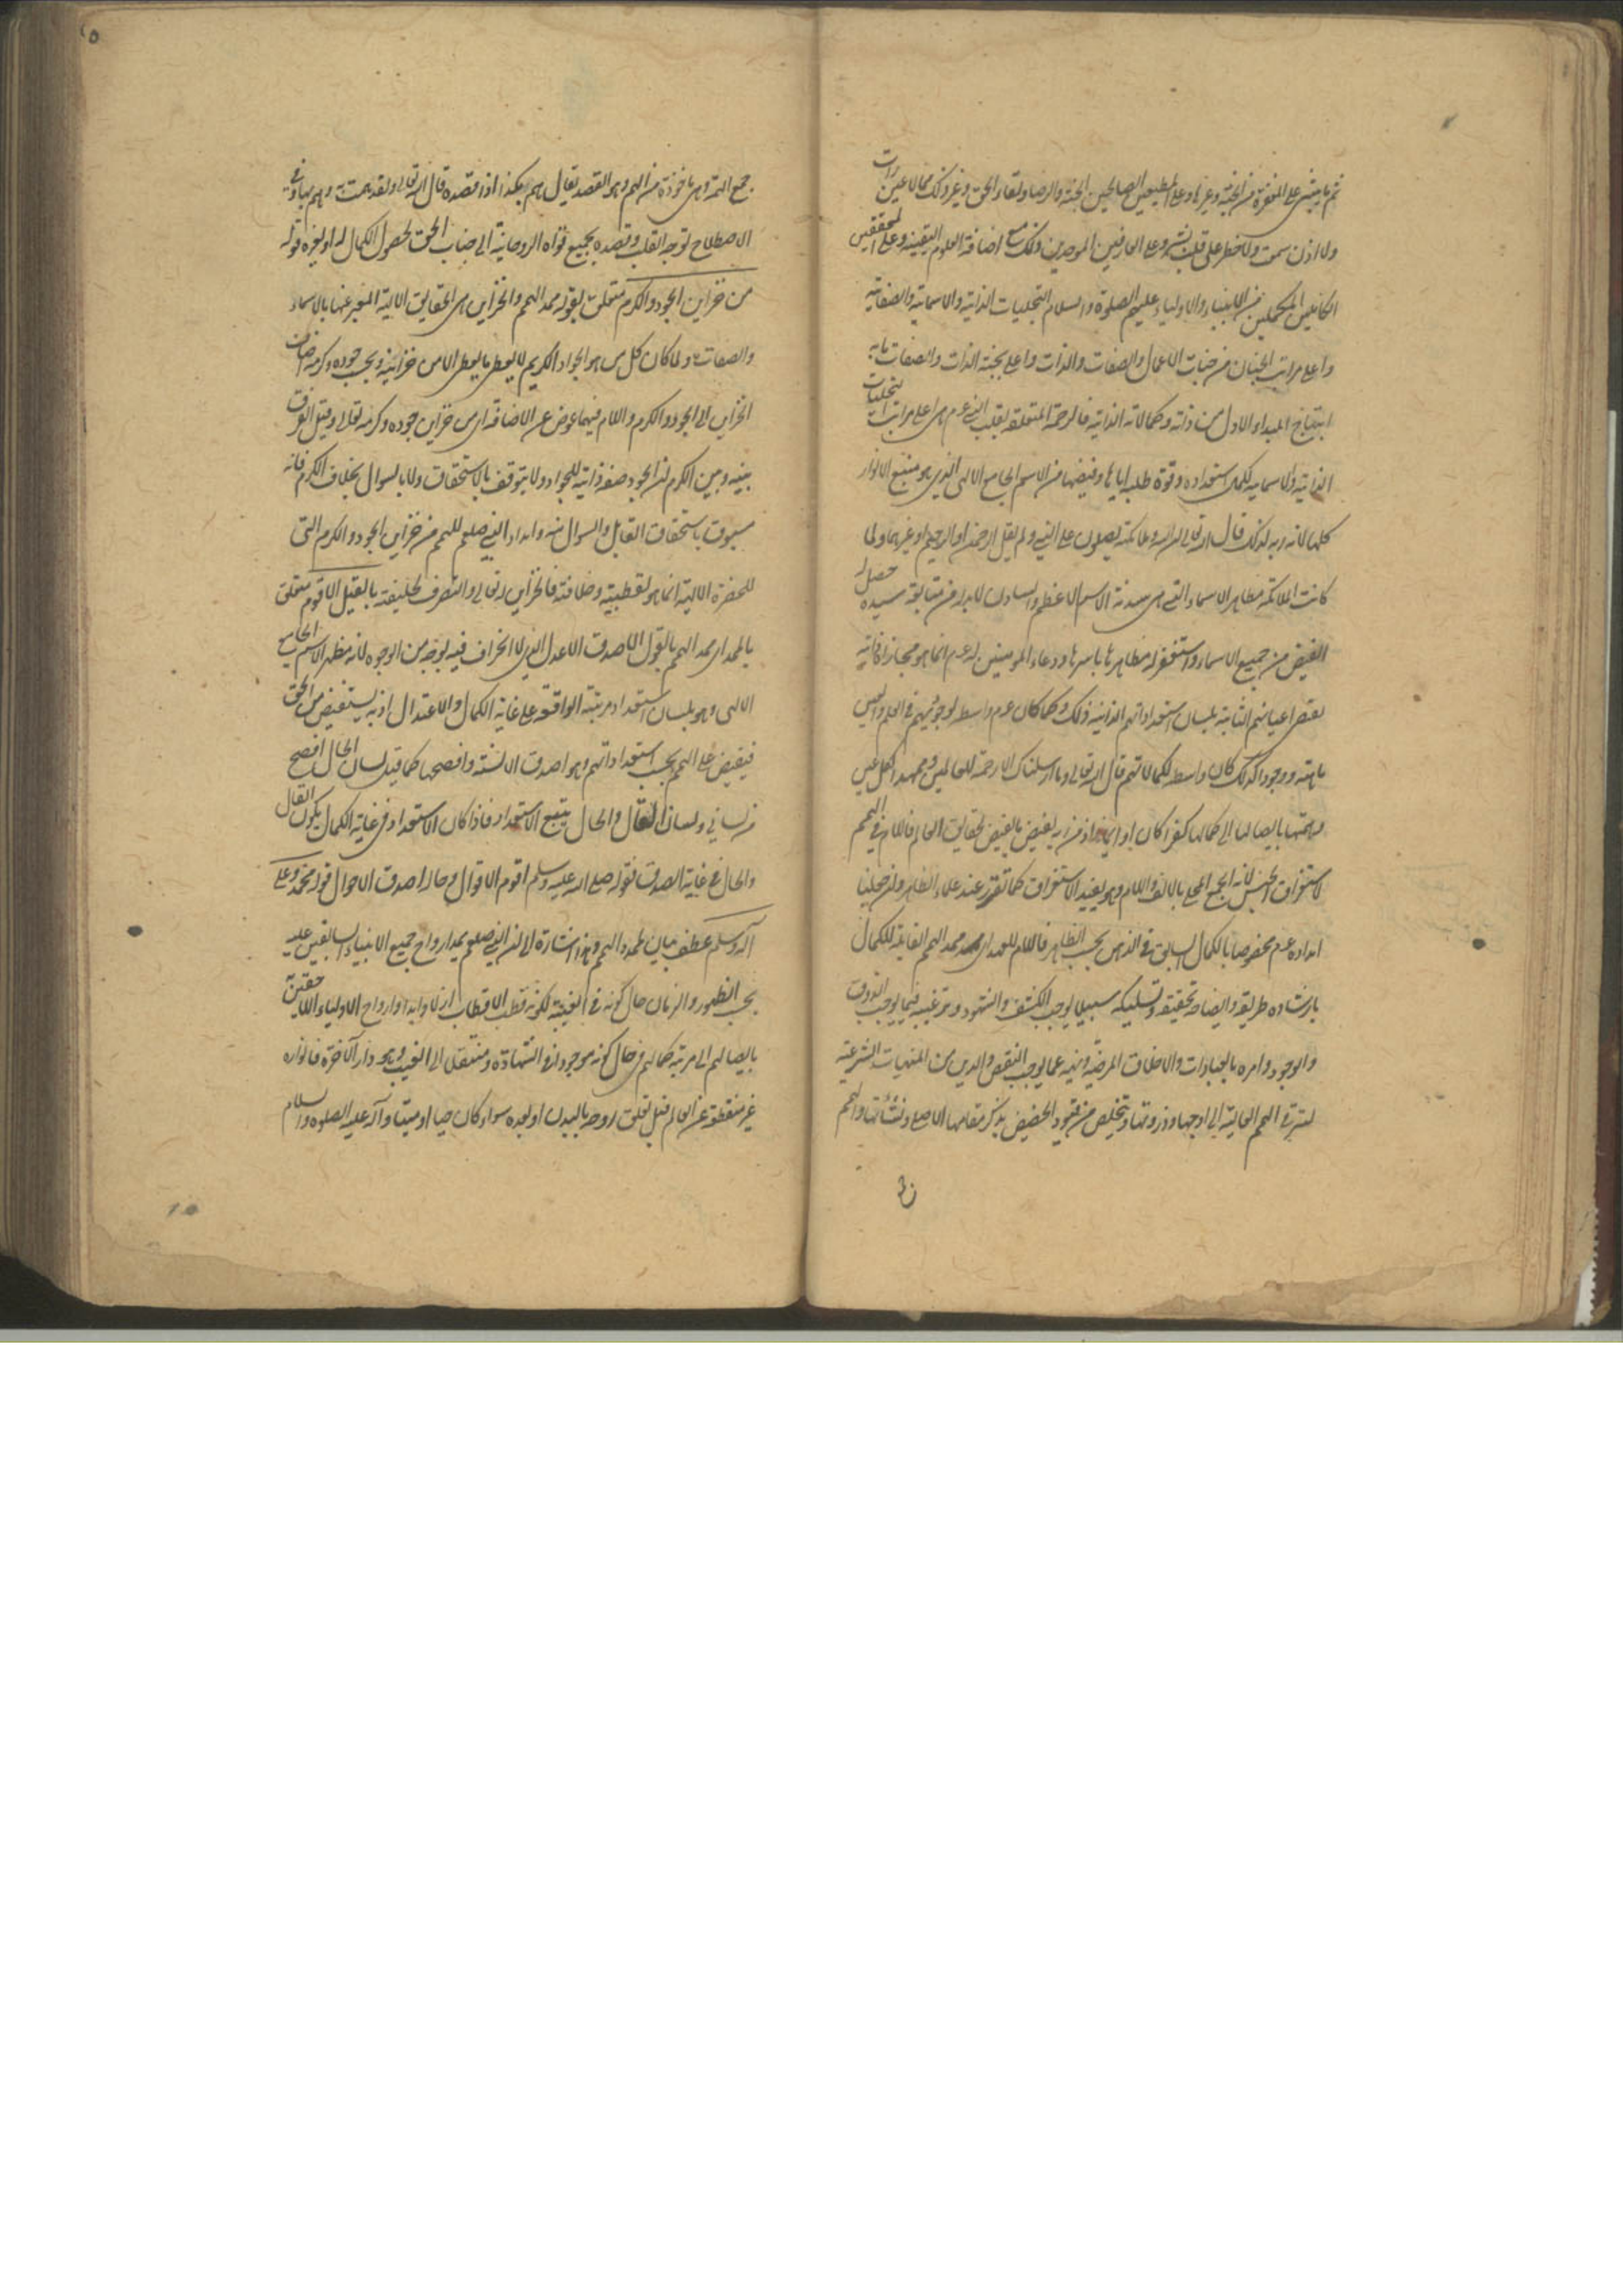 ثم بما ينبئ على المغفرة من الجنة وغيرها وعلى المطيعين الصالحين الجنة والرضا ولقاء الحق وغير ذلك مما لا عين رات
ولا اذن سمعت ولا خطر على قلب بشر وعلى العارفين الموحدين ذلك مع اضافة العلوم اليقينية وعلى المحققين
الكاملين المكملين من الانبياء والاولياء عليهم الصلوة والسلام التجليات الذاتية والاسمائية والصفاتية
واعلى مراتب الجنان من جنات الاعمال والصفات والذات واعلى جنة الذات والصفات ما به
ابتهاج المبداء الاول من ذاته وكمالاته الذاتية فالرحمة المتعلقة بقلب النبي عم هى اعلى مراتب التجليات
الذاتية والاسمائية لكمال استعداده وقوة طلبه اياها وفيضها من الاسم الجامع الالهى الذى هو منبع الانوار
كلها لانه ربه لذلك قال الله تعالى ان الله وملائكته يصلون على النبي ولم يقل الرحمن او الرحيم او غيرهما ولما
كانت الملائكة مظاهر الاسماء التى هى سدنة الاسم الاعظم والسادن لا بد له من متابعة سيده حصل له
الفيض من جميع الاسماء واستغفر له مظاهرها باسرها ودعاء المومنين له عم انما هو مجازاة
اعيانهم الثابتة بلسان استعداداتهم الذاتية ذلك وكما كان عم واسطة لوجودهم فى العلم والعين
ماهية ووجودا كذلك كان واسطة لكمالاتهم قال الله تعالى وما ارسلناك الا رحمة للعالمين وممد الكل عين
وهمتها بايصالها الى كمالها كفرا كان او ايمانا اذ من الله يفيض بالفيض لحقايق العالم فاللام فى الهمم
لاستغراق الجنس لانه الجمع المحلى بالالف واللام وهو يفيد الاستغراق كما تقرر عند علماء الظاهر وان جعلنا
امداده عم مخصوصا بالكمال السابق فى الذهن بحسب الظاهر فاللام للعهد اى ممد الهمم القابلة للكمال
بارشاده طريقه وايضاحه تحقيقه وتسليكه سبيلا يوجب الكشف والشهود وترغيبه فيما يوجب الذوق
والوجود وامره بالعبادات والاخلاق المرضية ونهيه عما يوجب النقص والدين من المنهيات الشرعية
لترقى الهمم العالية الى اوجها وذروتها وتخلص من قيود الحضيض بذكر مقامها الاصلى ونشأتها والهمم
جمع الهمة وهى ماخوذة من الهم وهو القصد يقال هم بكذا اذا قصده قال الله تعالى ولقد همت به وهم بها وفى
الاصطلاح توجه القلب وقصده بجميع قواه الروحانية الى جناب الحق لحصول الكمال له او لغيره قوله
من خزاين الجود والكرم متعلق بقوله ممد الهمم والخزاين هى الحقايق الالهية المعبر عنها بالاسماء
والصفات ولما كان كل من هو الجواد الكريم لا يعطى ما يعطى الا من خزاينه وبحسب جوده وكرمه اضاف
الخزاين الى الجود والكرم واللام فيهما عوض عن الاضافة اى من خزاين جوده وكرمه تعالى وقيل الفرق
بينه وبين الكرم ان الجود صفة ذاتية للجواد ولا يتوقف بالاستحقاق ولا بالسوال بخلاف الكرم فانه
مسبوق باستحقاق القابل والسوال منه وامداد النبي صلعم للهمم من خزاين الجود والكرم التى
للحضرة الالهية انما هو لقطبيته وخلافته فالخزاين لله تعالى والتصرف لخليفته بالقيل الاقوم متعلق
بالممد اى ممد الهمم بالقول الاصدق الاعدل الذى لا انحراف فيه بوجه من الوجوه لانه مظهر الاسم الجامع
الالهى وهو بلسان استعداد مرتبته الواقعة على غاية الكمال والاعتدال اذ به يستفيض من الحق
فيفيض على الهمم بحسب استعداداتهم وهو اصدق الالسنة وافصحها كما قيل لسان الحال افصح
من لسانى ولسان القال والحال يتبع الاستعداد فاذا كان الاستعداد فى غاية الكمال يكون القال
والحال فى غاية الصدق فقوله صلى الله عليه وسلم اقوم الاقوال وحاله اصدق الاحوال قوله محمد وعلى
آله وسلم عطف بيان لممد الهمم وهذا اشارة الى ان النبي صلعم يمد ارواح جميع الانبياء السابقين عليه
بحسب الظهور والزمان حال كونه فى الغيب لكونه قطب الاقطاب ازلا وابدا وارواح الاولياء اللاحقين
بايصالهم الى مرتبة كمالهم فى حال كونه موجودا فى الشهادة ومنتقلا الى الغيب وهو دار الآخرة فانواره
غير منقطعة عن العالم قبل تعلق روحه بالبدن او بعده سواء كان حيا او ميتا وآله عليه الصلوة والسلام